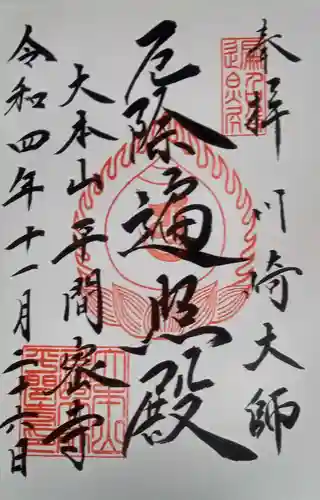 奉拝 川崎大師
厄除遍照殿
大本山平間密寺
令和四年十一月二十六日